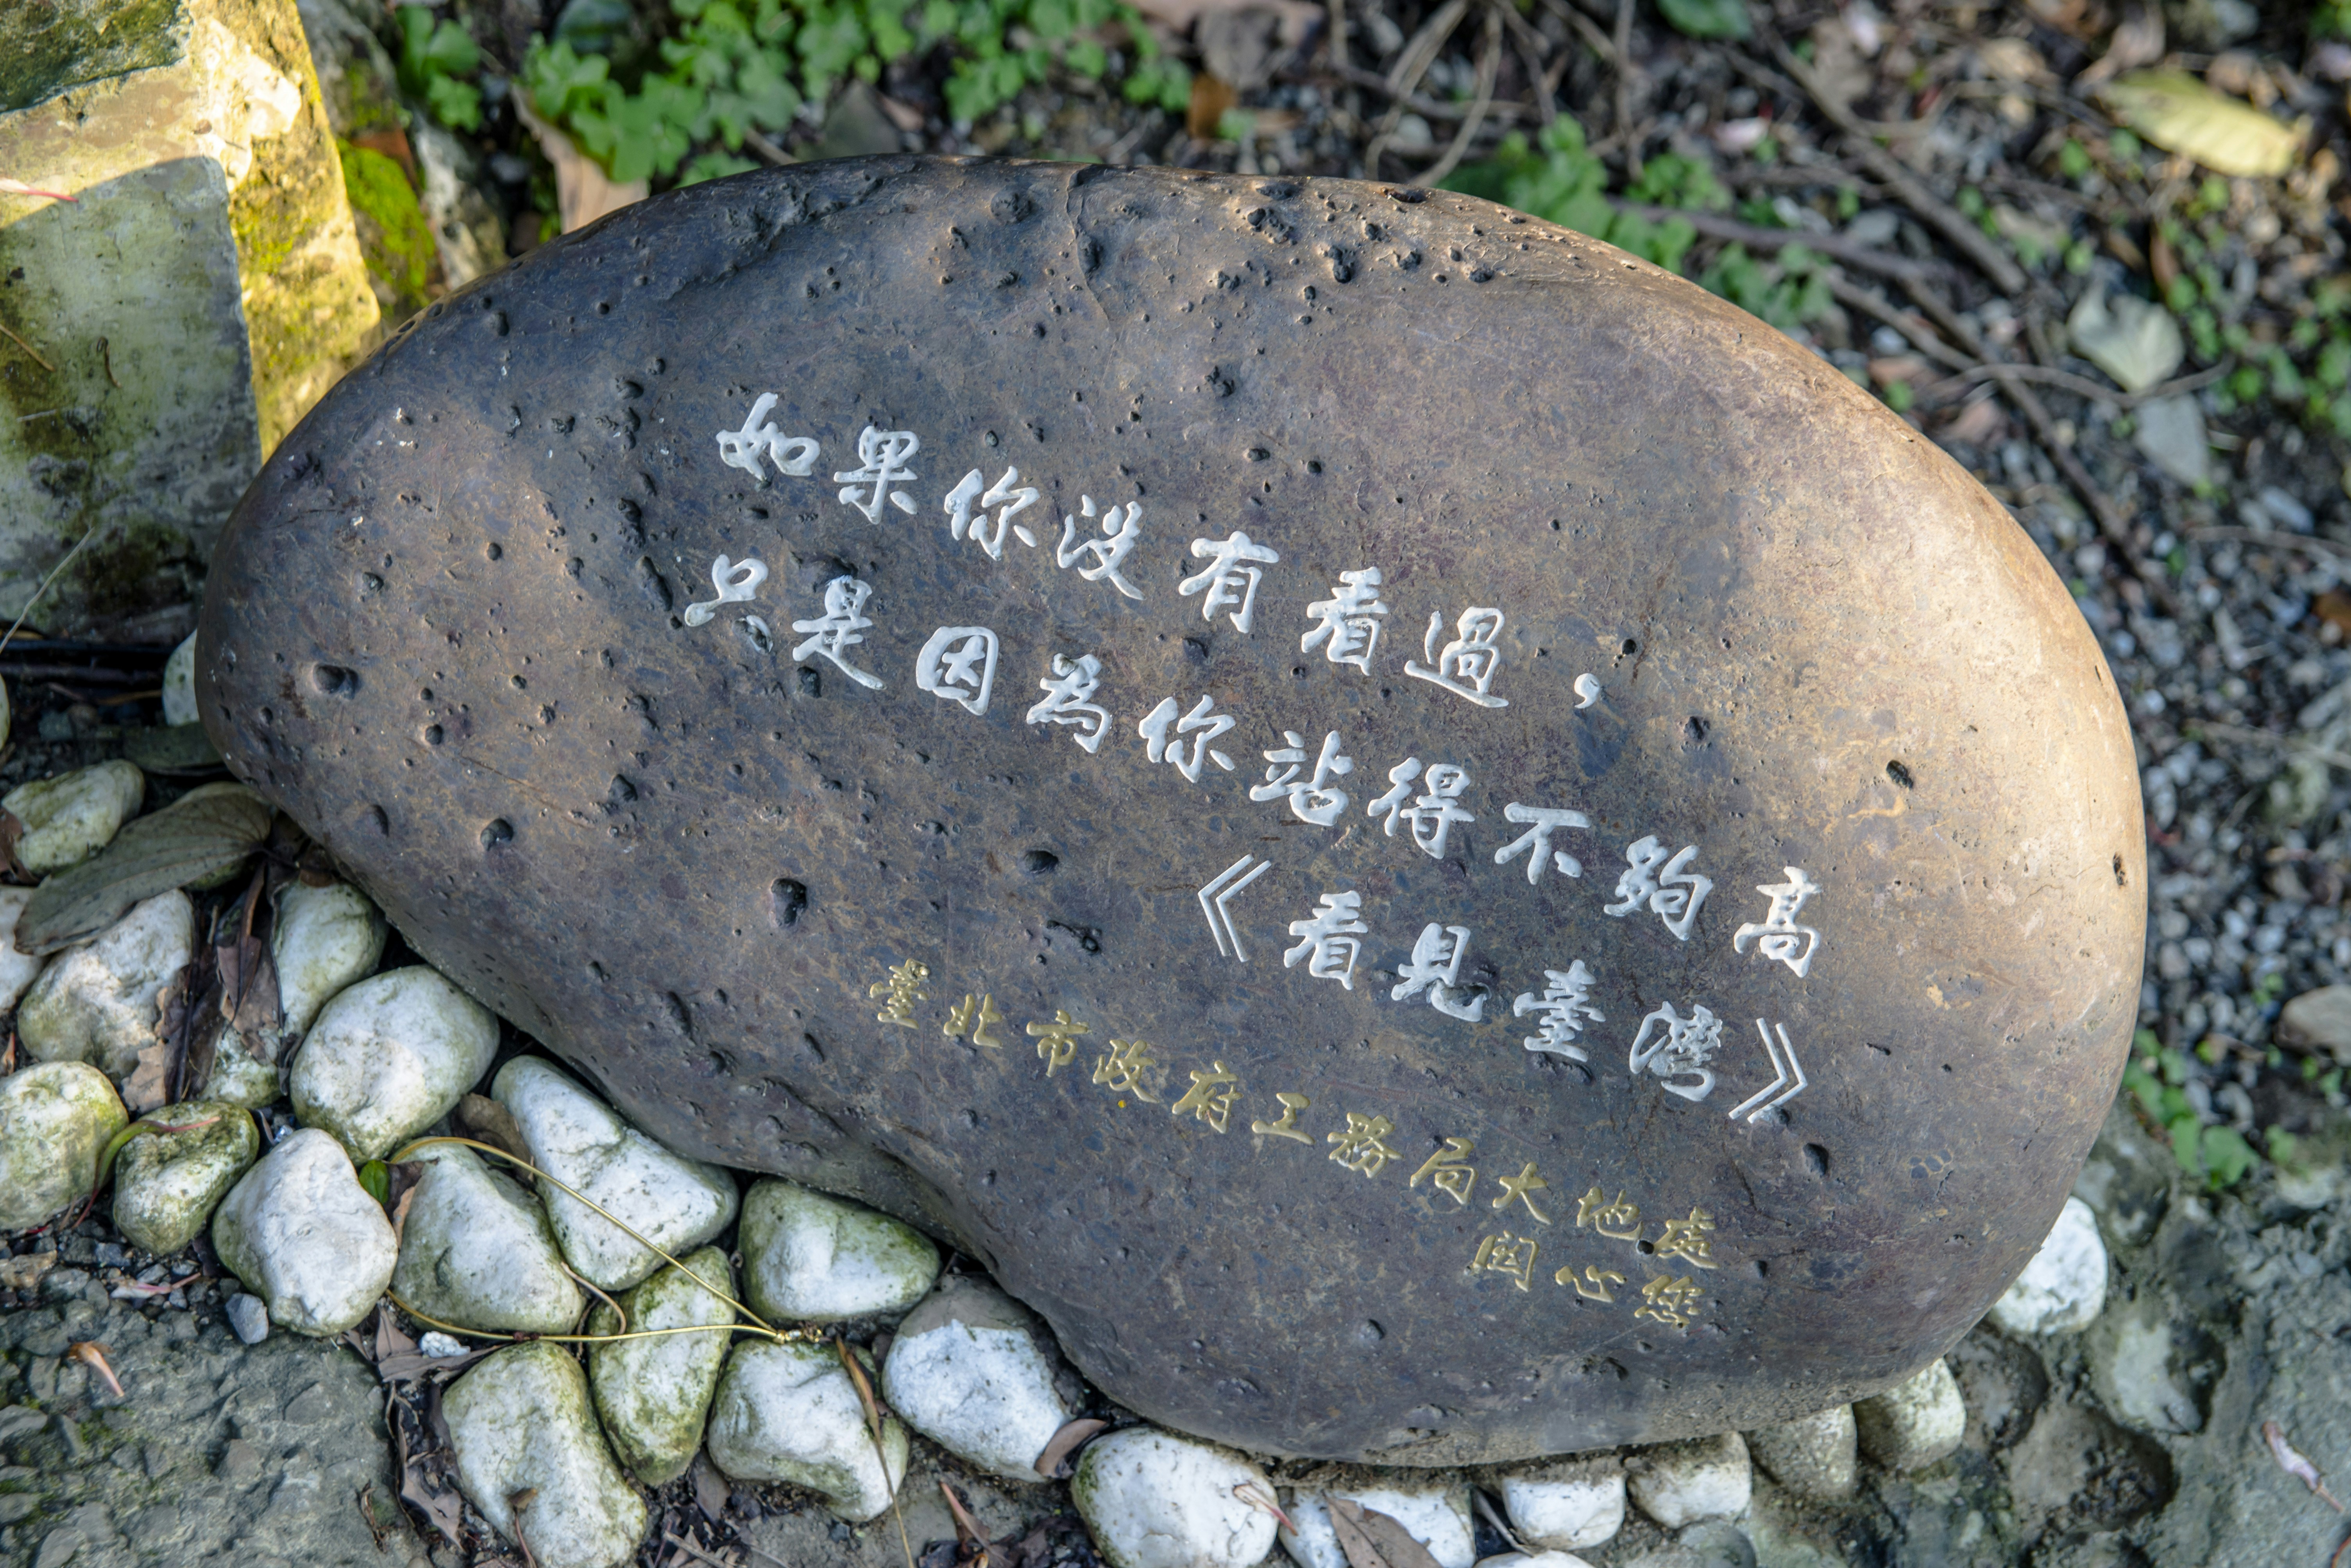 如果你沒有看過，
只是因為你站得不夠高
《看見臺灣》
臺北市政府工務局大地處
関心您